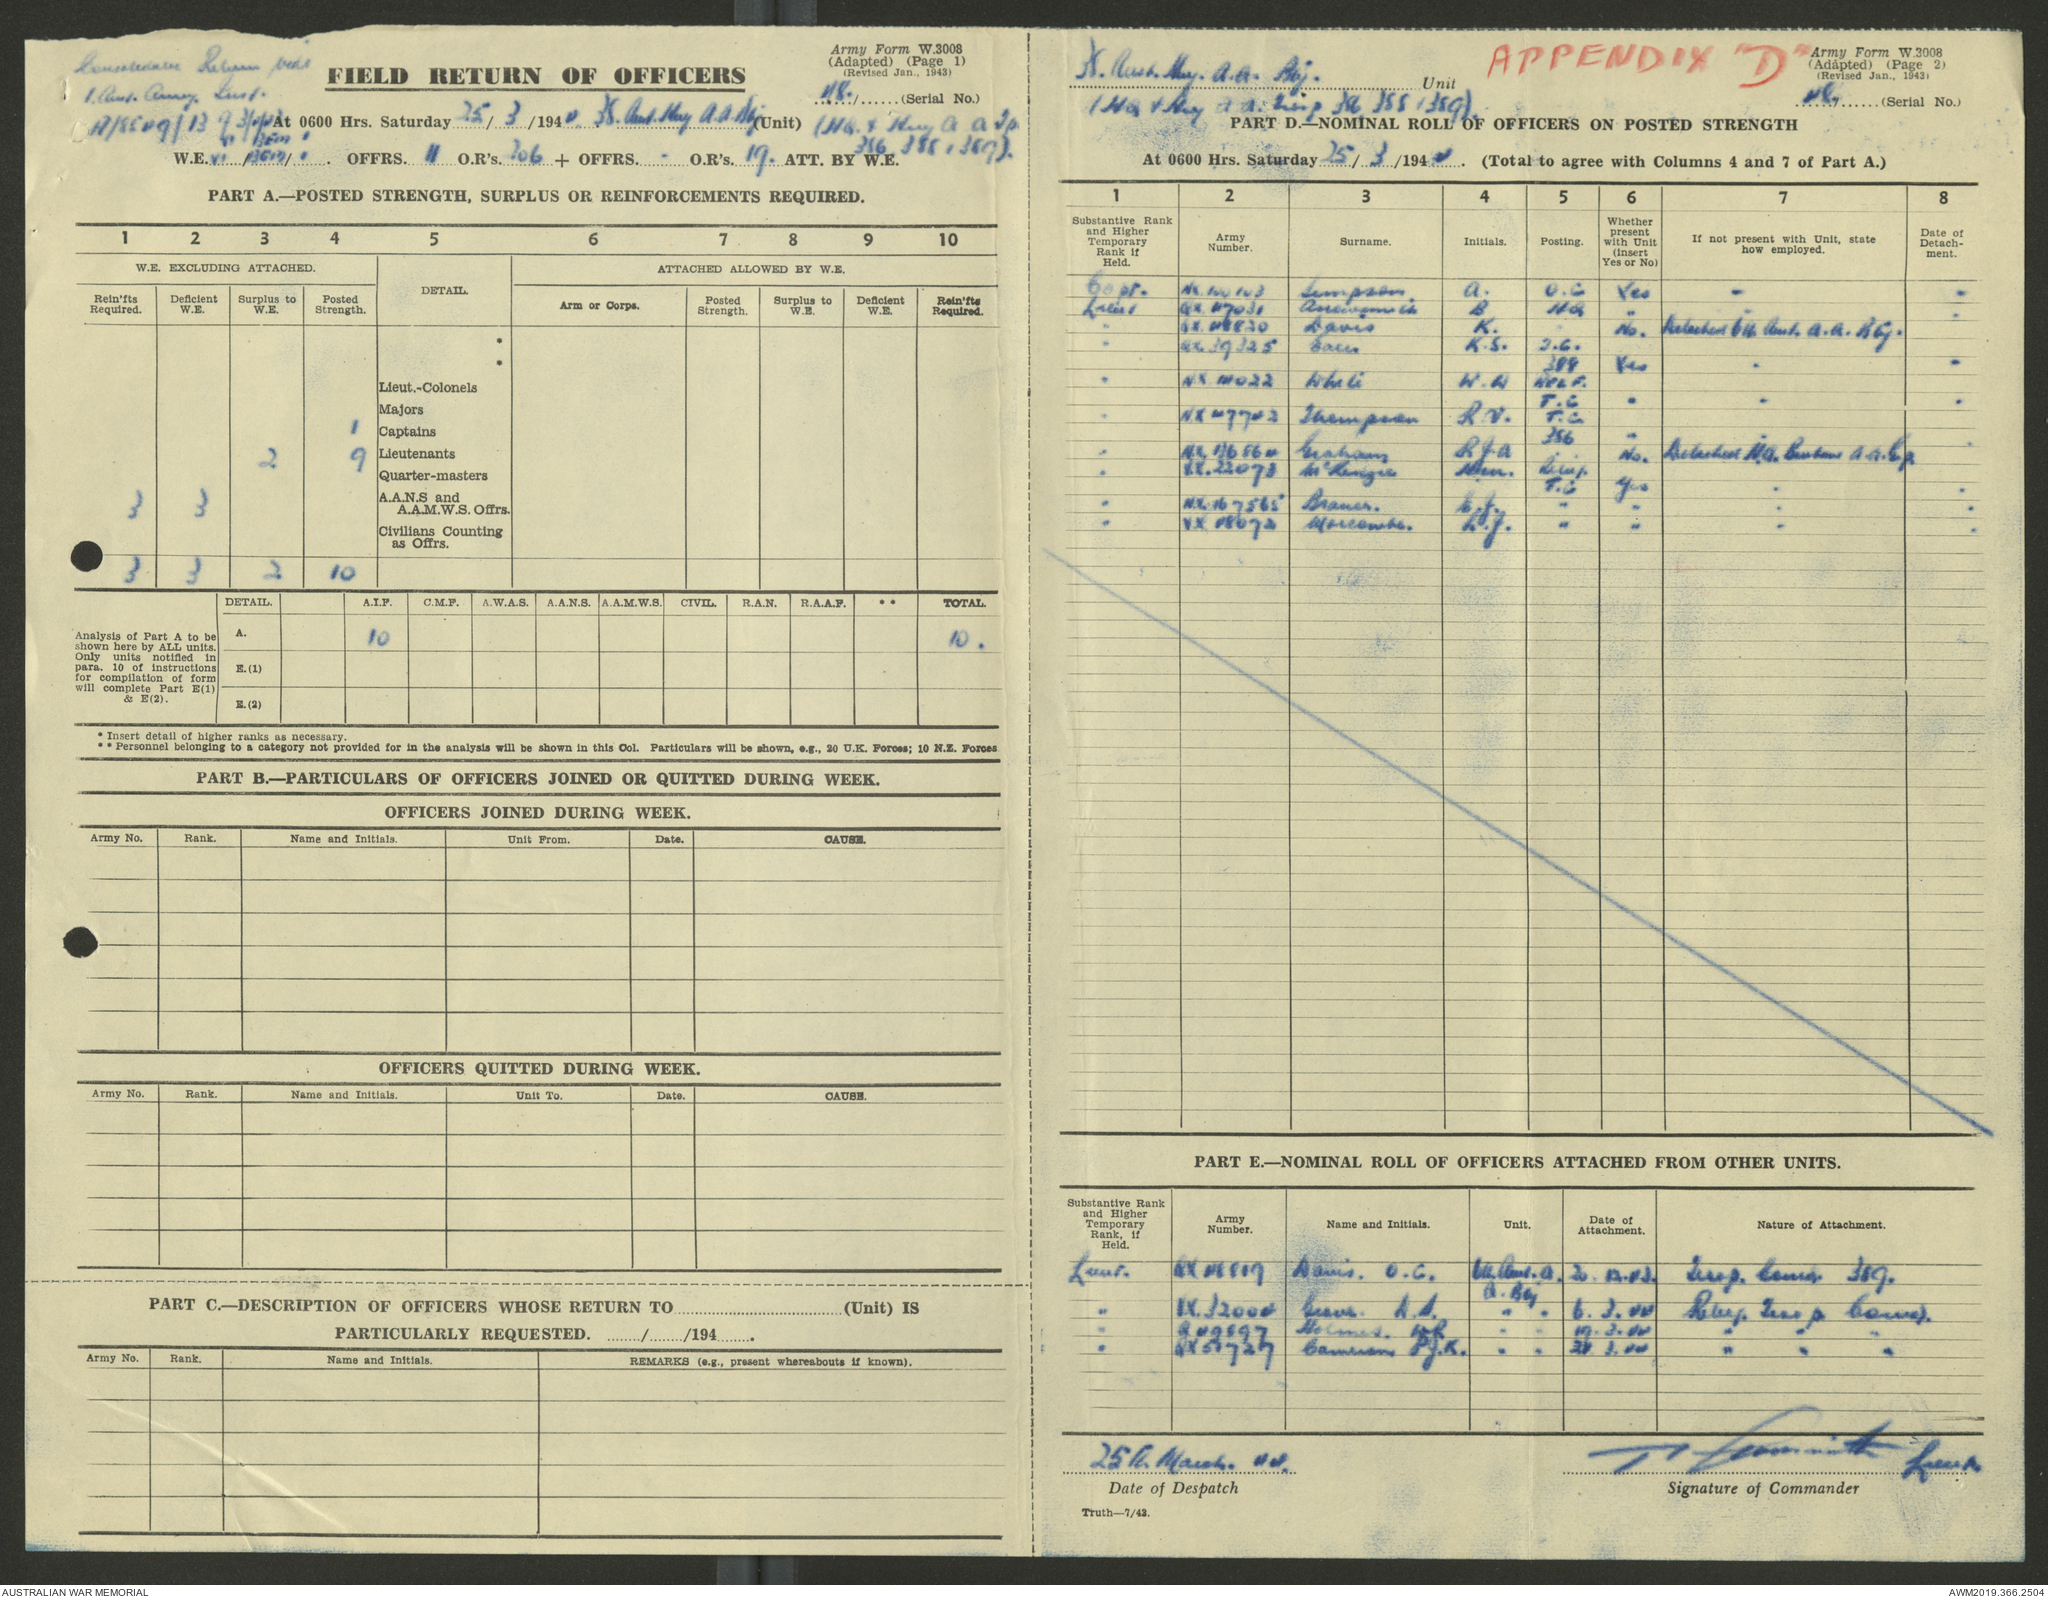 Consolidated Return vide
1 Aust. Army. Inst.
FIELD RETURN OF OFFICERS
Army Form W.3008
(Adapted) (Page 1)
(Revised Jan., 1943)
48./......(Serial No.)
At 0600 Hrs. Saturday 25/ 3 /1944. Aust. Hvy A.A. Bty (Unit) (HQ. & Hvy A A
386, 388, 389).
W.E. OFFRS. 11 O.R's. 206 + OFFRS. - O.R's. 19. ATT. BY W.E.
PART A.—POSTED STRENGTH, SURPLUS OR REINFORCEMENTS REQUIRED.
1 2 3 4 5 6 7 8 9 10
W.E. EXCLUDING ATTACHED.
DETAIL.
ATTACHED ALLOWED BY W.E.
Rein'fts Required.
Deficient W.E.
Surplus to W.E.
Posted Strength.
Arm or Corps.
Posted Strength.
Surplus to W.E.
Deficient W.E.
Rein'fts Required.
*
*
Lieut.-Colonels
Majors
1 Captains
2 9 Lieutenants
Quarter-masters
3 3 A.A.N.S and
A.A.M.W.S. Offrs.
Civilians Counting
as Offrs.
3 3 2 10
DETAIL. A.I.F. C.M.F. A.W.A.S. A.A.N.S. A.A.M.W.S. CIVIL. R.A.N. R.A.A.F. ** TOTAL.
Analysis of Part A to be
shown here by ALL units.
Only units notified in
para. 10 of instructions
for compilation of form
will complete Part E(1)
& E(2).
A. 10 10.
E.(1)
E.(2)
* Insert detail of higher ranks as necessary.
** Personnel belonging to a category not provided for in the analysis will be shown in this Col. Particulars will be shown, e.g., 20 U.K. Forces; 10 N.Z. Forces
PART B.—PARTICULARS OF OFFICERS JOINED OR QUITTED DURING WEEK.
OFFICERS JOINED DURING WEEK.
Army No. Rank. Name and Initials. Unit From. Date. CAUSE.
OFFICERS QUITTED DURING WEEK.
Army No. Rank. Name and Initials. Unit To. Date. CAUSE.
PART C.—DESCRIPTION OF OFFICERS WHOSE RETURN TO..............................(Unit) IS
PARTICULARLY REQUESTED. ......./......./194.......
Army No. Rank. Name and Initials. REMARKS (e.g., present whereabouts if known).
Aust. Hvy. A.A. Bty. Unit
(HQ & Hvy A A. 386 388, 389).
APPENDIX "D"
Army Form W.3008
(Adapted) (Page 2)
(Revised Jan., 1943)
48/......(Serial No.)
PART D.—NOMINAL ROLL OF OFFICERS ON POSTED STRENGTH
At 0600 Hrs. Saturday 25/ 3 /1944. (Total to agree with Columns 4 and 7 of Part A.)
1 2 3 4 5 6 7 8
Substantive Rank and Higher Temporary Rank if Held.
Army Number.
Surname.
Initials.
Posting.
Whether present with Unit (insert Yes or No)
If not present with Unit, state how employed.
Date of Detachment.
Capt. NX.100103 Simpson A. O.C Yes " "
Lieut QX.47031 B HQ " " "
" QX.48830 Davis K. " No. Detached 6th Aust. A.A. Bty.
" QX.39325 K.S. T.C.
388 Yes " "
" NX.111022 White W.W
T.C " " "
" NX.117742 Thompson R.V. T.C
386 "
" Graham R.J.A " No. Detached HQ. Brisbane A.A. Gp
" VX.22073 McKenzie
T.C Yes " "
" NX.167565 " " " "
" VX.118072 Morcombe. L.J. " " " "
PART E.—NOMINAL ROLL OF OFFICERS ATTACHED FROM OTHER UNITS.
Substantive Rank and Higher Temporary Rank, if Held.
Army Number.
Name and Initials.
Unit.
Date of Attachment.
Nature of Attachment.
Lieut. QX.48819 Davis. O.C. 6th. Aust. A. 20. 12.43. Troop. Comdr 389.
A. Bty
" VX.32004 " " 6. 3.44 Troop Comd.
" Holmes. " " 19. 3.44 " " "
" QX51727 Cameron P.J.K. " " 3.44 " " "
25th. March. 44.
Date of Despatch
Lieut
Signature of Commander
Truth—7/43.
AUSTRALIAN WAR MEMORIAL
AWM2019.366.2504